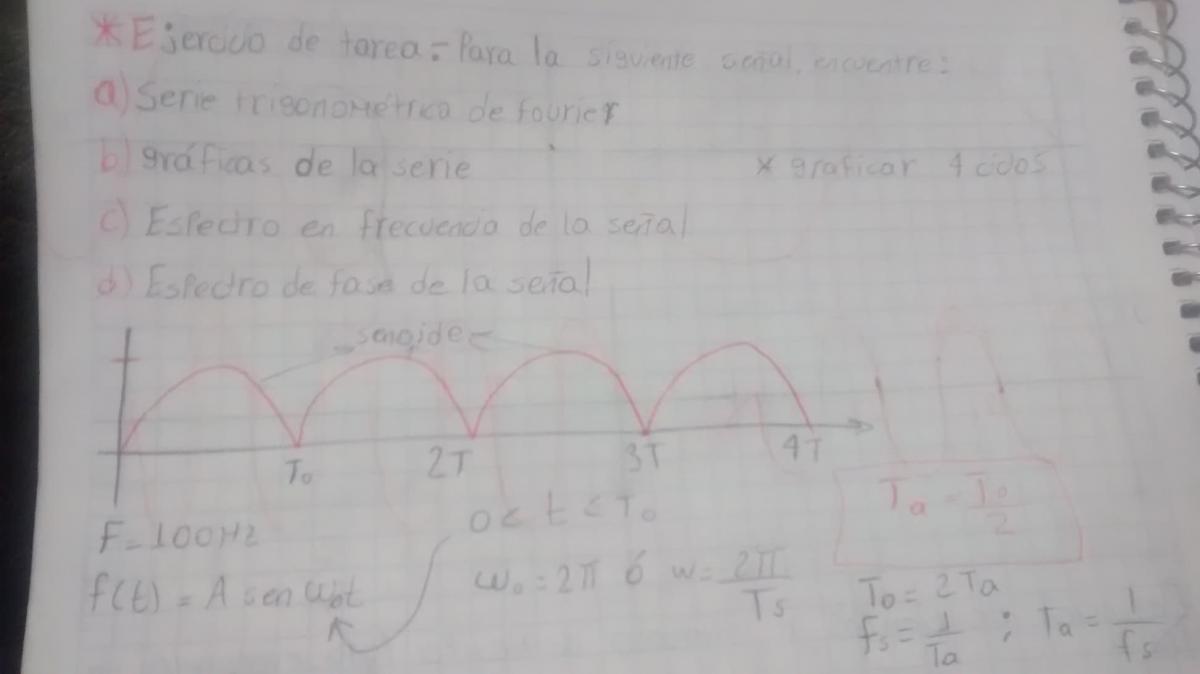 * Ejercicio de tarea = Para la siguiente señal, encuentre:
a) Serie trigonométrica de fourier
b) gráficas de la serie * graficar 4 ciclos
c) Espectro en frecuencia de la señal
d) Espectro de fase de la señal
senoide
T₀ 2T 3T 4T
Tₐ = T₀/2
F = 100 Hz
0 < t < T₀
f(t) = A sen ω₀t
ω₀ = 2π ó w = 2π/Ts
T₀ = 2Ta
fs = 1/Ta ; Ta = 1/fs